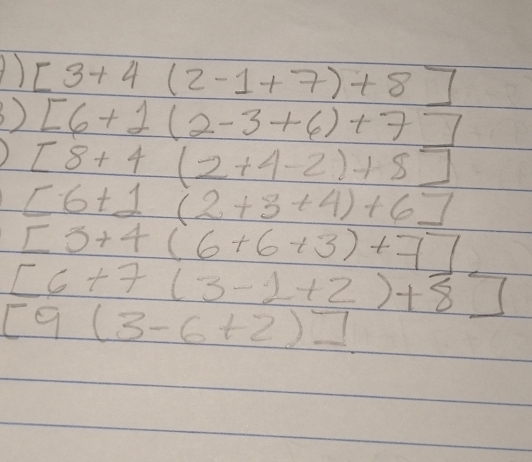 ) [ 3+4 (2-1+7)+8 ]
) [6+1 (2-3+6)+7 ]
) [ 8+4 (2+4-2)+8 ]
[6+1 (2+3+4)+6]
[ 3+4 (6+6+3)+7]
[6+7 (3-1+2)+8 ]
[9 (3-6+2) ]